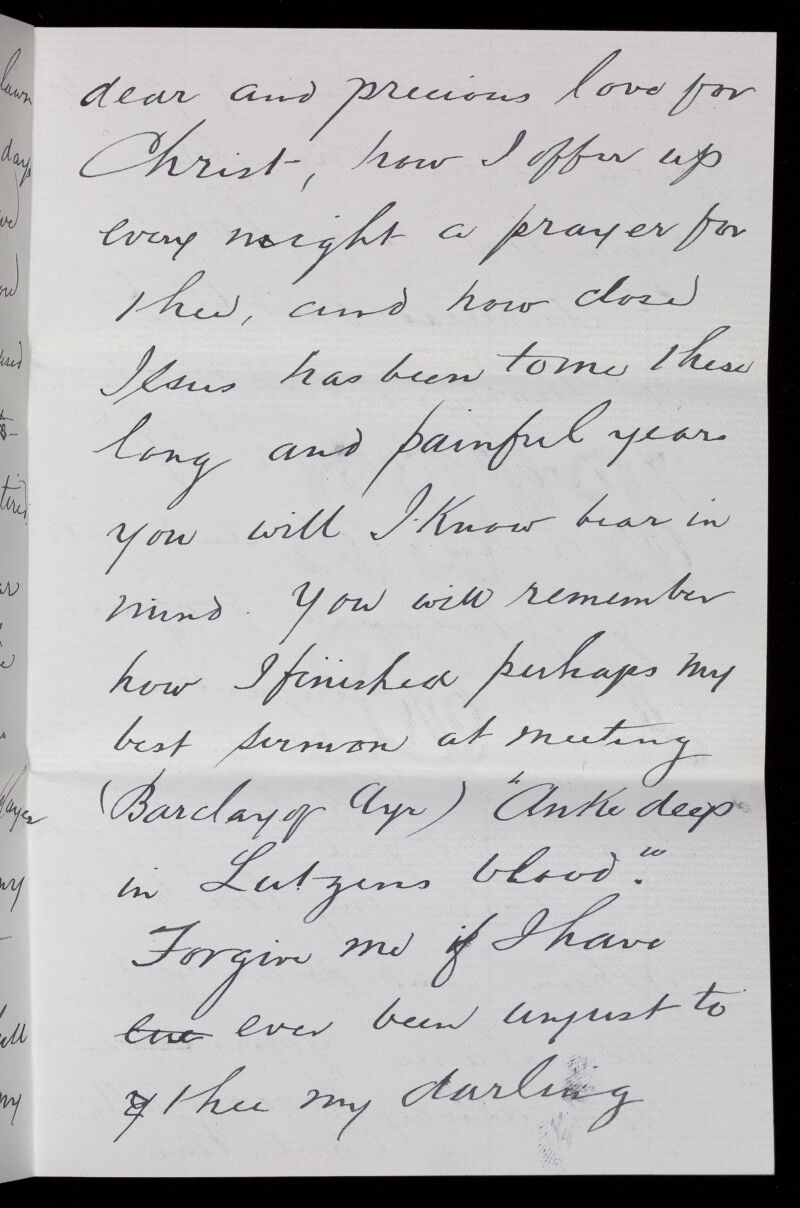 dear and precious love for
Christ, how I offer up
every night a prayer for
thee, and how close
Jesus has been to me these
long and painful years
you will I know bear in
mind. You will remember
how I finished perhaps my
best sermon at meeting
(Barclay of Ayr) "Ankle deep
in Lutzens blood."
Forgive me if I have
eve ever been unjust to
y thee my darling
lawn
days
tired
my
my